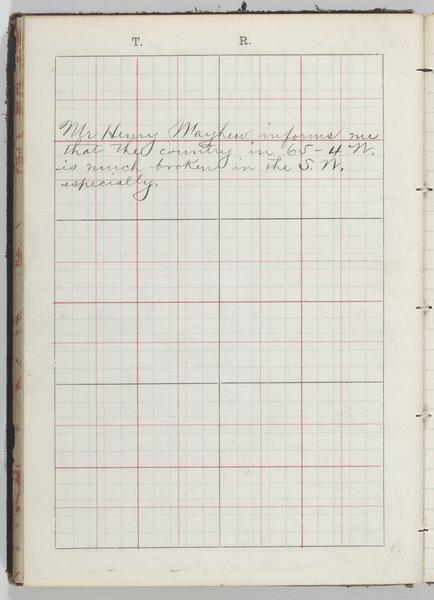 T. R.
Mr Henry Mayhew informs me
that the country in 65-4 W.
is much broken in the S. W.
especially.